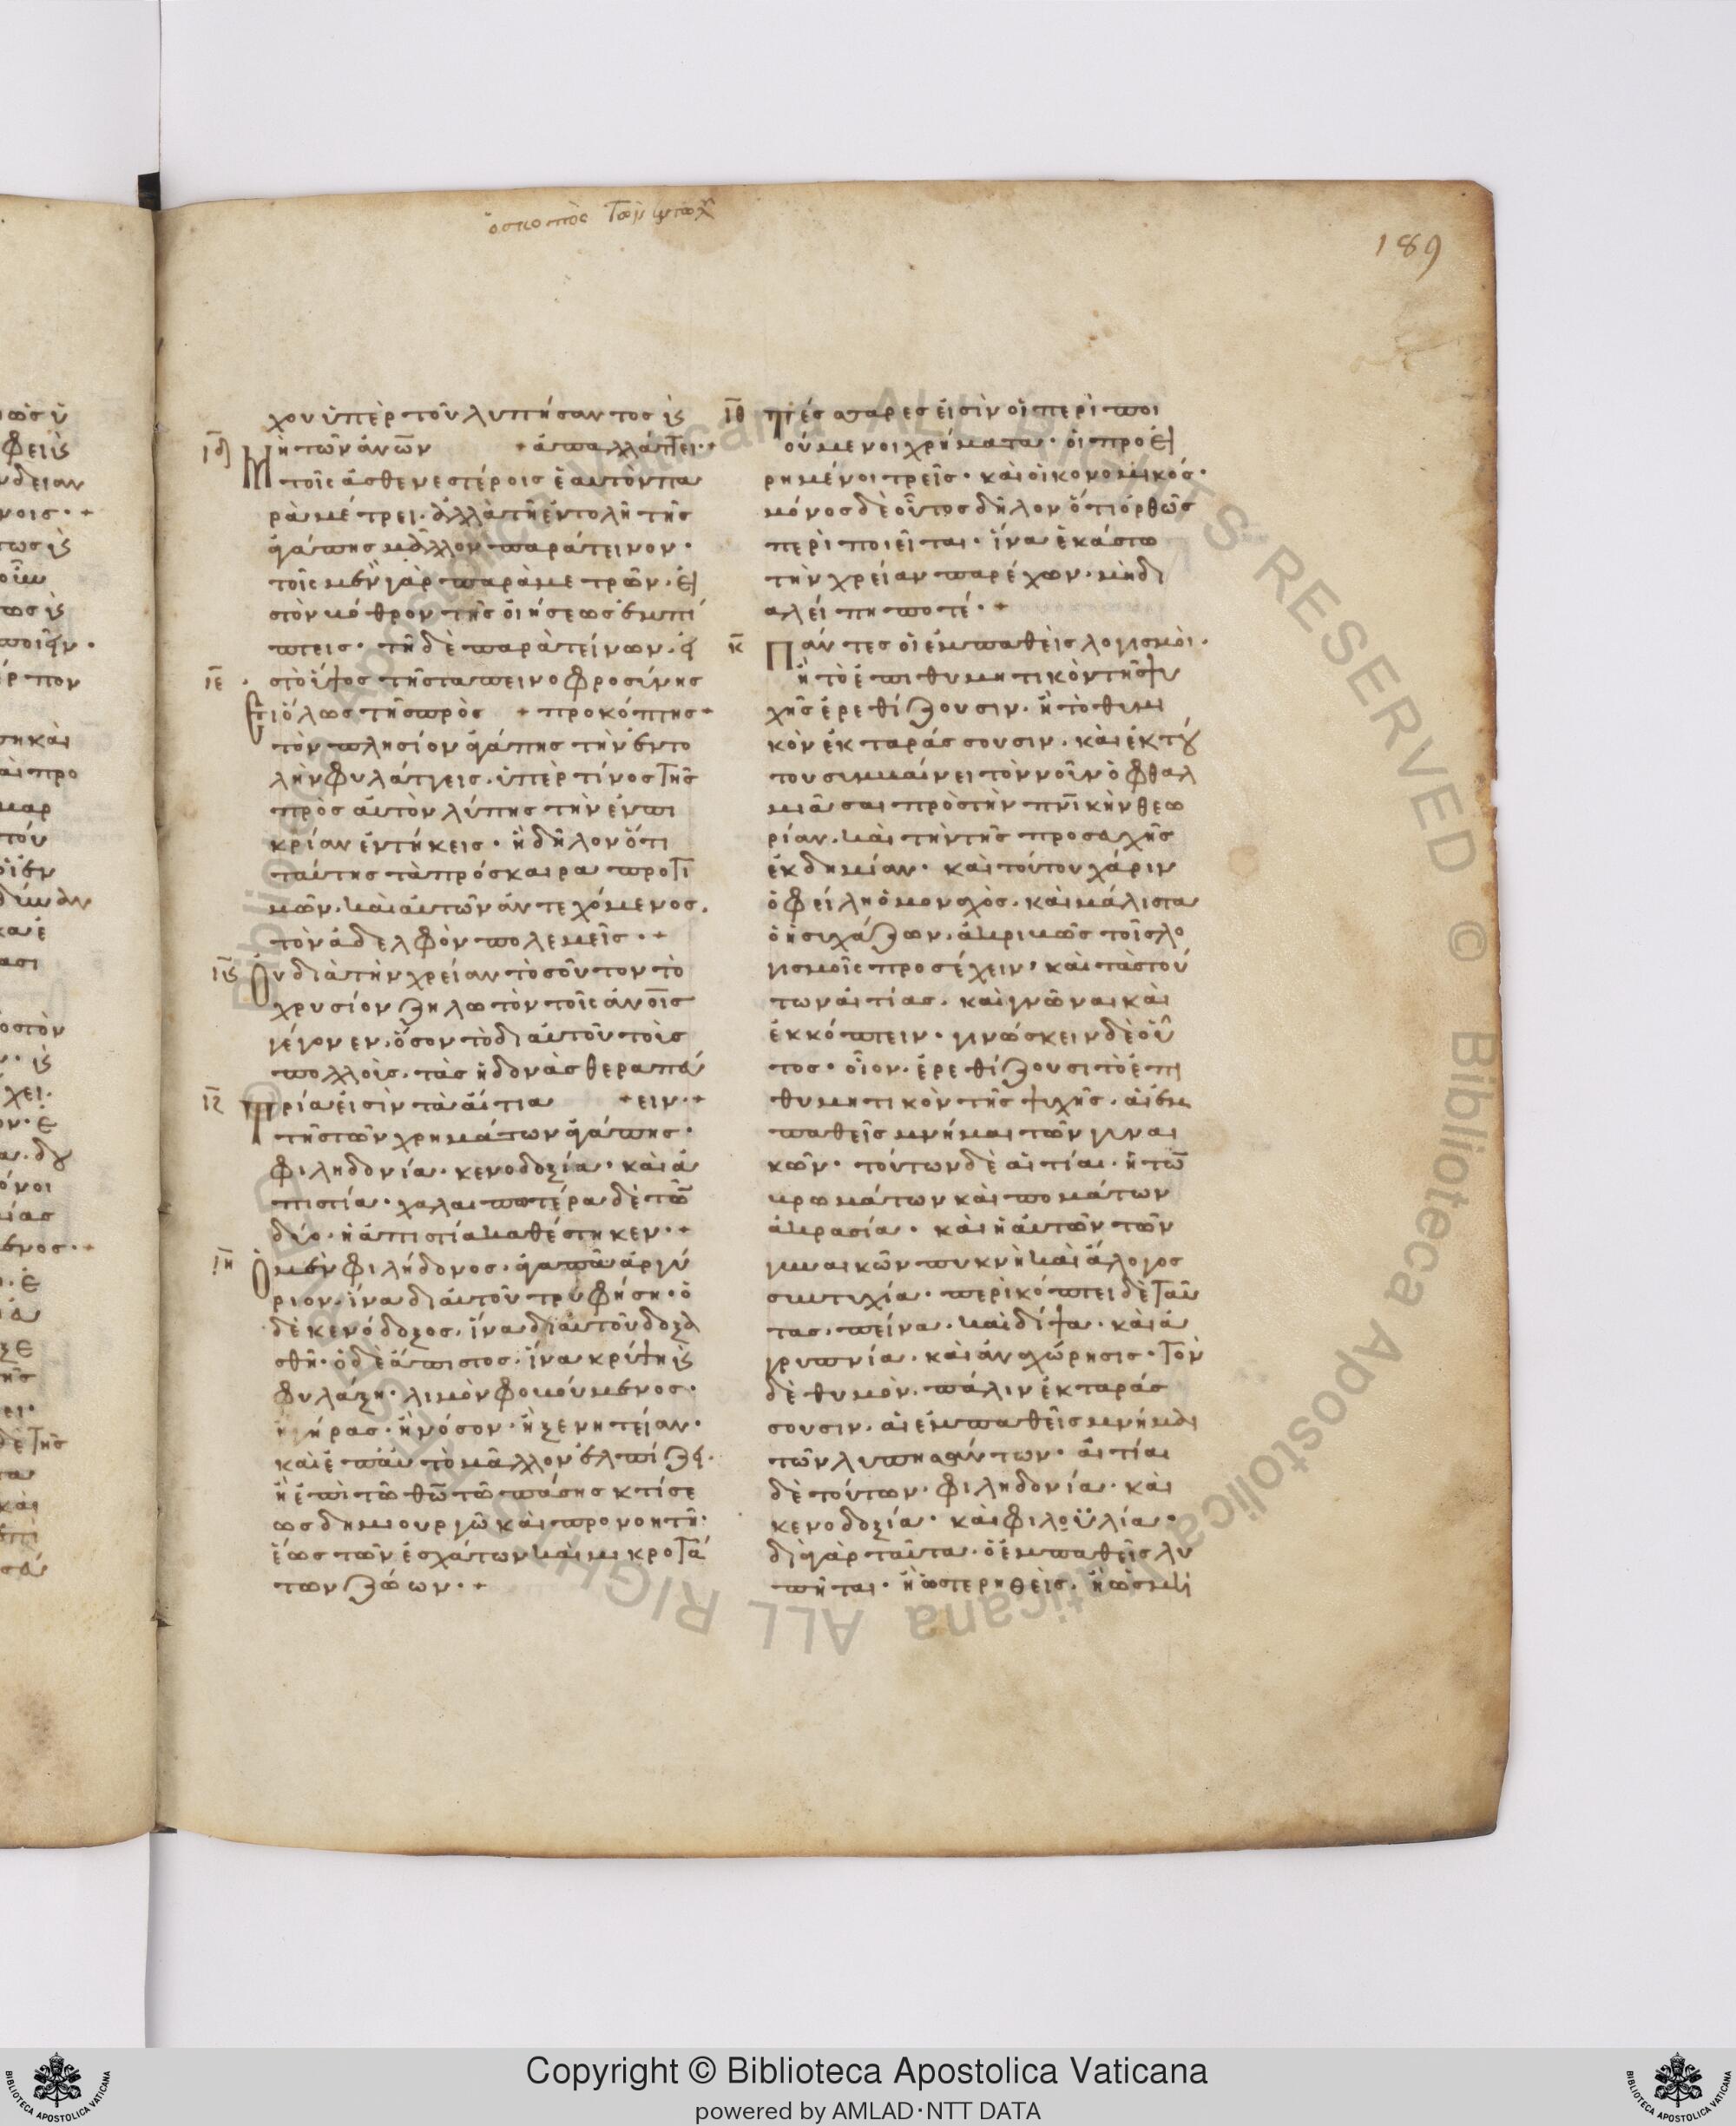 189
χου ὑπὲρ τοῦ λυπήσαντος εἰς
ιδ Μὴ τῶν ἀνῶν + ἀπαλλάττει· +
τοῖς ἀσθενεστέροις ἑαυτὸν πα
ραμέτρει. ἀλλὰ τῆ ἐντολῆ τῆς
ἀγάπης μᾶλλον παράτεινον·
τοῖς μὲν γὰρ παραμετρῶν. εἰ
στὸν βόθρον τῆς οἰήσεως ἐμπί
πτεις· τῆ δὲ παρατείνων. εἰ
ιε στὸ ὕψος τῆς ταπεινοφροσύνης
Ετι ὅλως τῆς πρὸς + προκόπτης +
τὸν πλησίον ἀγάπης τὴν ἐντο
λὴν φυλάττεις. ὑπὲρ τίνος τῆς
πρὸς αὐτὸν λύπης τὴν
κρίαν ἐντήκεις· ἢ δῆλον ὅτι
ταύτης τὰ πρόσκαιρα προτι
μῶν. καὶ αὐτῶν ἀντεχόμενος.
τὸν ἀδελφὸν πολεμεῖς· +
ιϛ Οὐ διὰ τὴν χρείαν τοσοῦτον τὸ
χρυσίον ζηλωτὸν τοῖς ἀνοῖς
γέγονεν. ὅσον τὸ δι αὐτοῦ τοὺς
πολλοὺς. τὰς ἡδονὰς θεραπεύ
ιζ Τρία εἰσὶν τὰ αἴτια + ειν· +
τῆς τῶν χρημάτων ἀγάπης·
φιληδονία. κενοδοξία. καὶ ἀ
πιστία· χαλαιπωτέρα δὲ τῶν
δύο. ἡ ἀπιστία καθέστηκεν· +
ιη Ο μὲν φιλήδονος. ἀγαπᾶ ἀργύ
ριον. ἵνα δι αὐτοῦ τρυφήση· ὁ
δὲ κενόδοξος. ἵνα δι αὐτοῦ δοξα
σθῆ· ὁ δὲ ἄπιστος. ἵνα κρύψη εἰς
φυλάξη· λιμὸν φοβούμενος·
ἢ γήρας· ἢ νόσον· ἢ ξενητείαν·
καὶ ἐπ αὐτὸ μᾶλλον ἐλπίζει.
ἢ ἐπὶ τῶ θῶ τῶ πάσης κτίσε
ως δημιουργῶ καὶ προνοητῆ·
ἕως τῶν ἐσχάτων καὶ μικροτά
των ζώων· +
ιθ Τέσσαρες εἰσὶν οἱ περιποι
ούμενοι χρήματα· οἱ προει
ρημένοι τρεῖς· καὶ οἰκονομικός·
μόνος δὲ οὗτος δῆλον ὅτι ὀρθῶς
περιποιεῖται· ἵνα ἑκάστω
τὴν χρείαν παρέχων. μὴ δι
αλείπη ποτέ· +
κ Πάντες οἱ ἐμπαθεῖς λογισμοὶ.
ἢ τὸ ἐπιθυμητικὸν τῆς ψυ
χῆς ἐρεθίζουσιν. ἢ τὸ θυμι
κὸν ἐκταράσσουσιν. καὶ ἐκ τού
του συμβαίνει τὸν νοῦν ὀφθαλ
μιᾶσαι πρὸς τὴν πνικὴν θεω
ρίαν. καὶ τὴν τῆς προσευχῆς
ἐκδημίαν· καὶ τούτου χάριν
ὀφείλη ὁ μοναχὸς. καὶ μάλιστα
ὁ ἡσυχάζων. ἀκριβῶς τοῖς λο
γισμοῖς προσέχειν· καὶ τὰς τού
των αἰτίας. καὶ γνῶναι καὶ
ἐκκόπτειν· γινώσκειν δὲ οὕ
τος· οἷον. ἐρεθίζουσι τὸ ἐπι
θυμητικὸν τῆς ψυχῆς. αἱ ἐμ
παθεῖς μνήμαι τῶν γυναι
κῶν· τούτων δὲ αἰτίαι. ἥ τῶν
βρωμάτων καὶ πομάτων
ἀκρασία· καὶ ἡ αὐτῶν τῶν
γυναικῶν πυκνὴ καὶ ἄλογος
συντυχία· περικόπτει δὲ ταύ
τας. πείνα. καὶ δίψα. καὶ ἀ
γρυπνία. καὶ ἀναχώρησις· τὸν
δὲ θυμὸν. πάλιν ἐκταράσ
σουσιν. αἱ ἐμπαθεῖς μνήμαι
τῶν λυπησάντων· αἰτίαι
δὲ τούτων. φιληδονία. καὶ
κενοδοξία· καὶ φιλοϋλία·
δι ἃ γὰρ ταῦτα. ὁ ἐμπαθεῖς λυ
πῆται· ἢ ὡς στερηθεὶς. ἢ ὡς μὴ
Biblioteca Apostolica Vaticana ALL RIGHTS RESERVED © Biblioteca Apostolica Vaticana ALL RIGHTS RESERVED ©
Copyright © Biblioteca Apostolica Vaticana
powered by AMLAD·NTT DATA
BIBLIOTECA APOSTOLICA VATICANA
BIBLIOTECA APOSTOLICA VATICANA